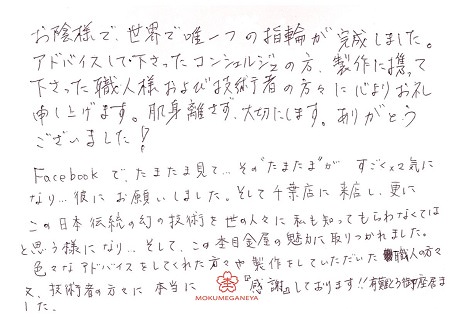 お陰様で、世界で唯一つの指輪が完成しました。
アドバイスして下さったコンシェルジュの方、製作に携って
下さった職人様および技術者の方々に心よりお礼
申し上げます。肌身離さず、大切にします。ありがとう
ございました!
Facebookで、たまたま見て…その"たまたま"が すごく×2気に
なり…彼に お願いしました。そして千葉店に来店し、更に
この日本伝統の幻の技術を世の人々に私も知ってもらわなくては
と思う様になり… そして、この杢目金屋の魅力に取りつかれました。
色々なアドバイスをしてくれた方々や製作をしていただいた 職人の方々
又、技術者の方々に 本当に 『感謝』しております!!有難とう御座居ま
した。
MOKUMEGANEYA